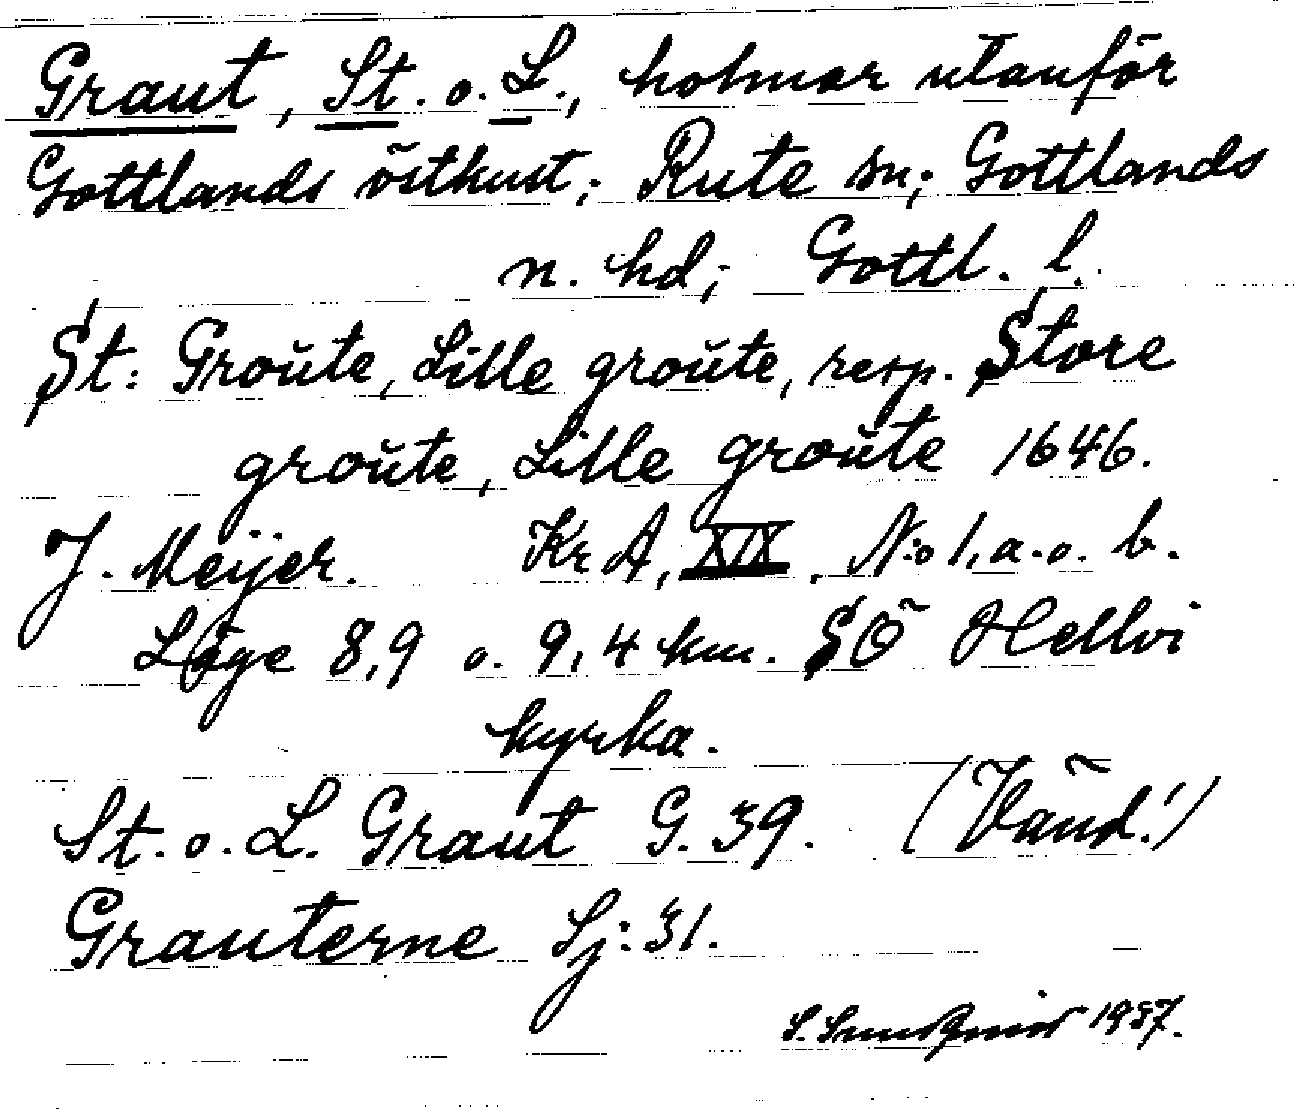 Graut, St. o. L., holmar utanför
Gottlands östkust; Rute sn; Gottlands
n. hd; Gottl. l.
St: Groŭte, Lille groŭte, resp. Store
groŭte, Lille groŭte 1646.
J. Meijer. Kr A, XIX, N:o 1, a. o. b.
Läge 8,9 o. 9,4 km. SÖ Hellvi
kyrka.
St. o. L. Graut G. 39. (Vänd!)
Grauterne Sj: 31.
S. 1937.